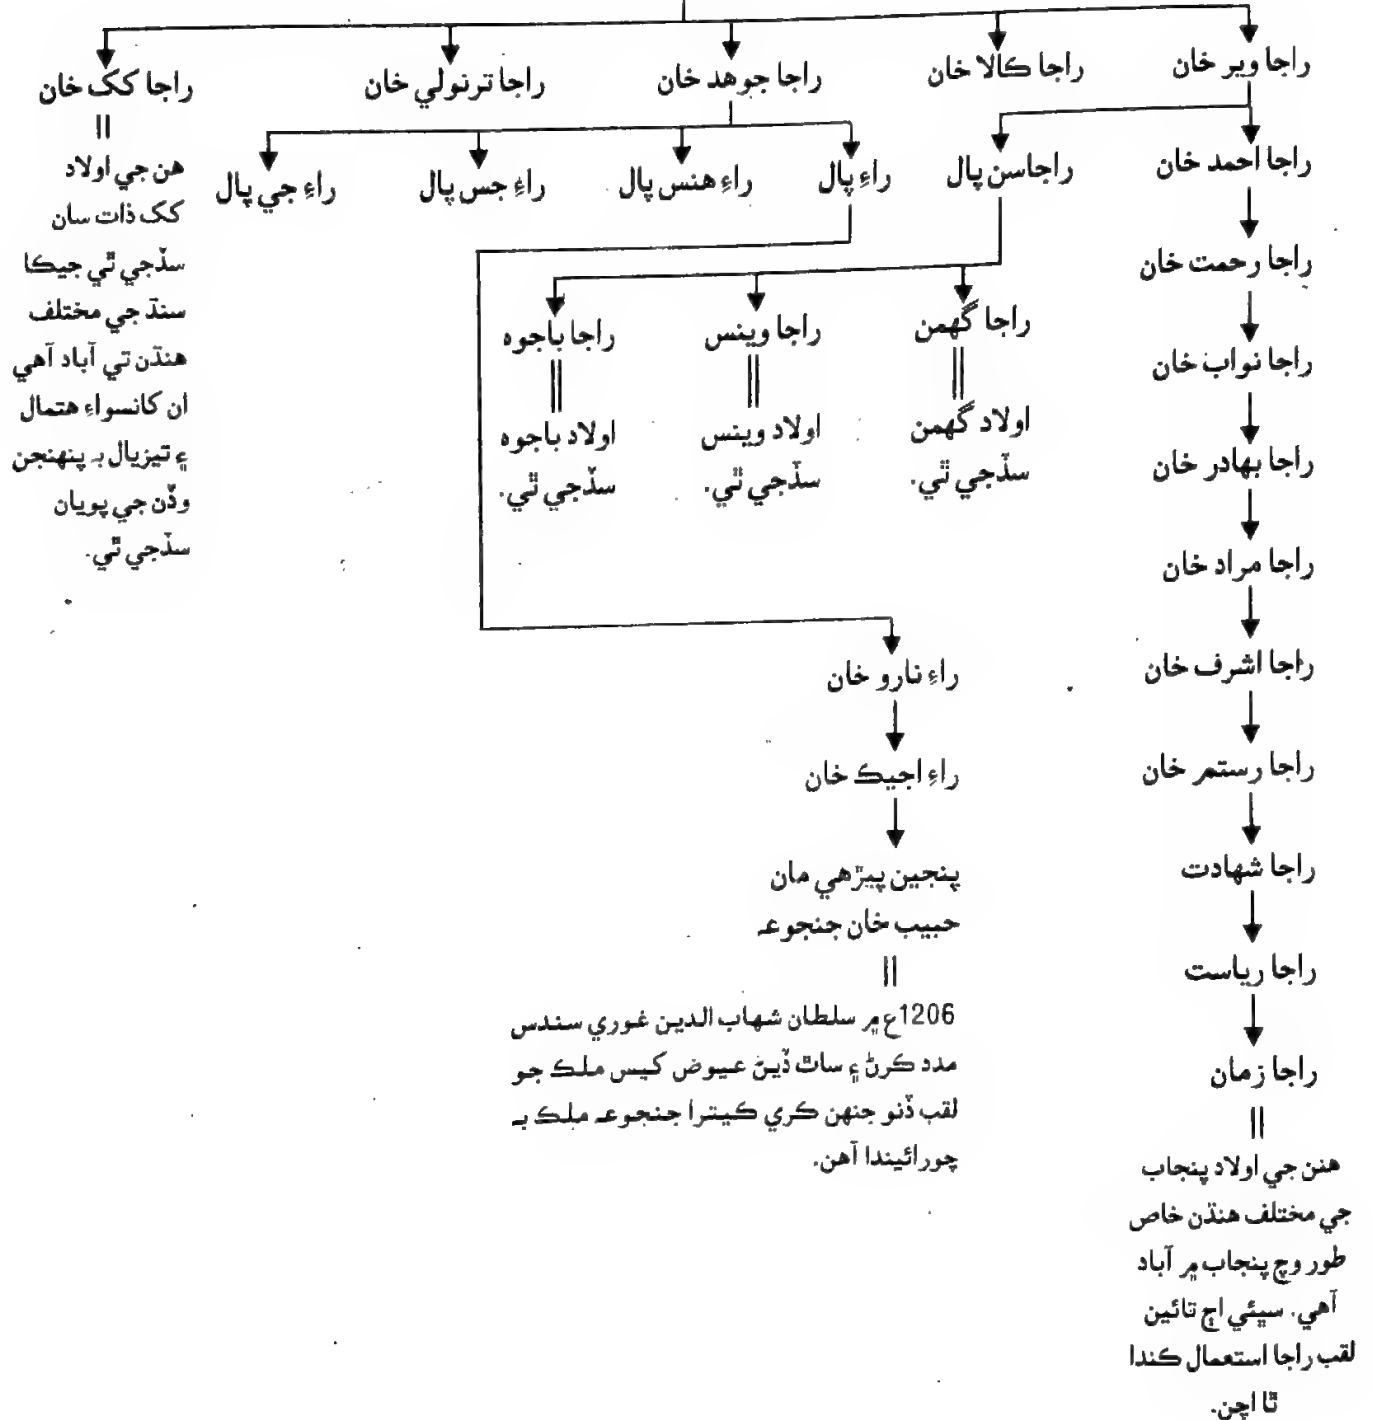 راجا وير خان
راجا ڪالا خان
راجا جوهد خان
راجا ترنولي خان
راجا ککـ خان
راجا احمد خان
راجاسن پال
راءِ پال
راءِ هنس پال
راءِ جس پال
راءِ جي پال
هن جي اولاد
ککـ ذات سان
سڏجي ٿي جيڪا
سنڌ جي مختلف
هنڌن تي آباد آهي
ان کانسواءِ هتمال
۽ تيزيال بہ پنهنجن
وڏن جي پويان
سڏجي ٿي.
راجا رحمت خان
راجا نواب خان
راجا بهادر خان
راجا مراد خان
راجا اشرف خان
راجا رستم خان
راجا شهادت
راجا رياست
راجا زمان
هنن جي اولاد پنجاب
جي مختلف هنڌن خاص
طور وچ پنجاب ۾ آباد
آهي. سڀئي اڄ تائين
لقب راجا استعمال ڪندا
ٿا اچن.
راجا گهمن
اولاد گهمن
سڏجي ٿي.
راجا وينس
اولاد وينس
سڏجي ٿي.
راجا باجوه
اولاد باجوه
سڏجي ٿي.
راءِ نارو خان
راءِ اجيڪ خان
پنجين پيڙهي مان
حبيب خان جنجوعہ
1206ع ۾ سلطان شهاب الدين غوري سندس
مدد ڪرڻ ۽ ساٿ ڏيڻ عيوض کيس ملڪ جو
لقب ڏنو جنهن ڪري ڪيترا جنجوعہ ملڪ بہ
چورائيندا آهن.